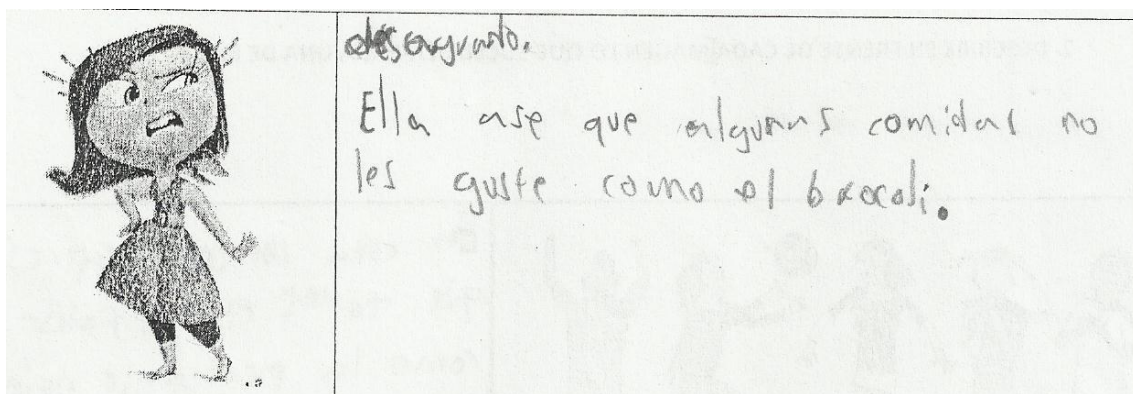 desagrado.
Ella ase que algunas comidas no
les guste como el brocoli.